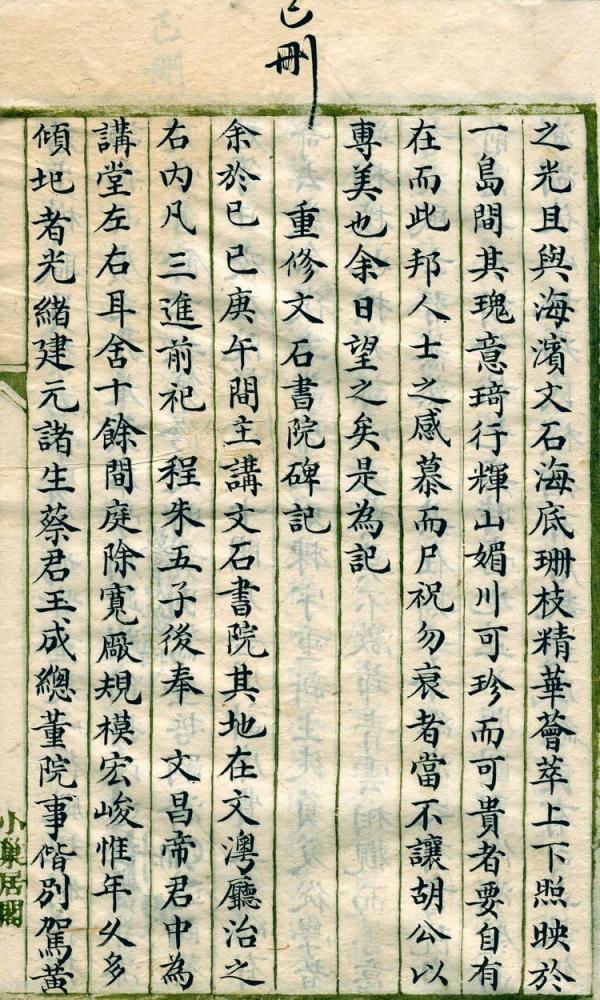 已刪
之光且與海濱文石海底珊枝精華薈萃上下照映於
一島間其瑰意琦行輝山媚川可珍而可貴者要自有
在而此邦人士之感慕而尸祝勿衰者當不讓胡公以
專美也余日望之矣是為記
重修文石書院碑記
余於己巳庚午間主講文石書院其地在文澳廳治之
右內凡三進前祀程朱五子後奉文昌帝君中為
講堂左右耳舍十餘間庭除寬厰規模宏峻惟年久多
傾圯者光緒建元諸生蔡君玉成總董院事偕別駕黃
小巢居閣